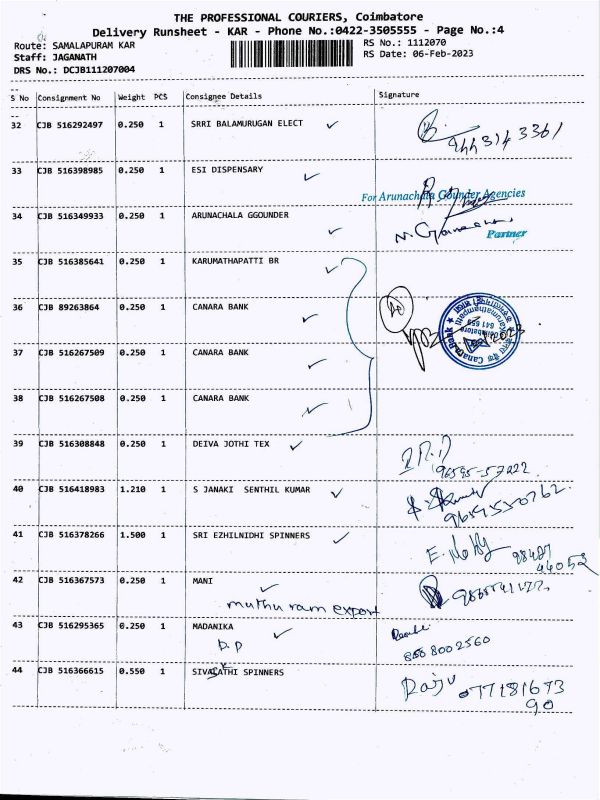 THE PROFESSIONAL COURIERS, Coimbatore
Delivery Runsheet - KAR - Phone No.:0422-3505555 - Page No.:4
Route: SAMALAPURAM KAR
RS No.: 1112070
Staff: JAGANATH
RS Date: 06-Feb-2023
DRS No.: DCJB111207004
S No Consignment No Weight PCS Consignee Details Signature
32 CJB 516292497 0.250 1 SRRI BALAMURUGAN ELECT
9443143361
33 CJB 516398985 0.250 1 ESI DISPENSARY
For Arunachala Gounder Agencies
34 CJB 516349933 0.250 1 ARUNACHALA GGOUNDER
Partner
35 CJB 516385641 0.250 1 KARUMATHAPATTI BR
36 CJB 89263864 0.250 1 CANARA BANK
Canara Bank
641 659
37 CJB 516267509 0.250 1 CANARA BANK
38 CJB 516267508 0.250 1 CANARA BANK
39 CJB 516308848 0.250 1 DEIVA JOTHI TEX
40 CJB 516418983 1.210 1 S JANAKI SENTHIL KUMAR
41 CJB 516378266 1.500 1 SRI EZHILNIDHI SPINNERS
42 CJB 516367573 0.250 1 MANI
muthu ram export
43 CJB 516295365 0.250 1 MADANIKA
D.P
8508002560
44 CJB 516366615 0.550 1 SIVASATHI SPINNERS
Raju 077181693
90